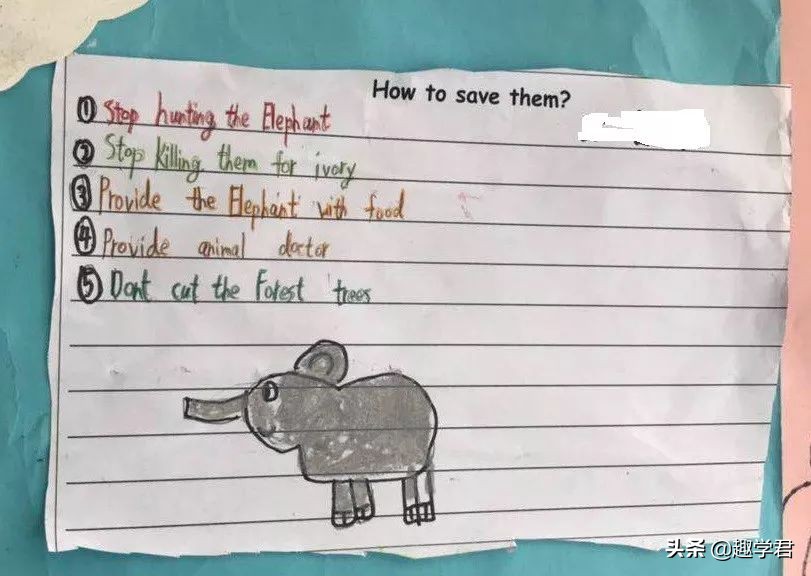 How to save them?
① Stop hunting the Elephant
② Stop killing them for ivory
③ Provide the Elephant with food
④ Provide animal doctor
⑤ Dont cut the Forest trees
头条 @趣学君